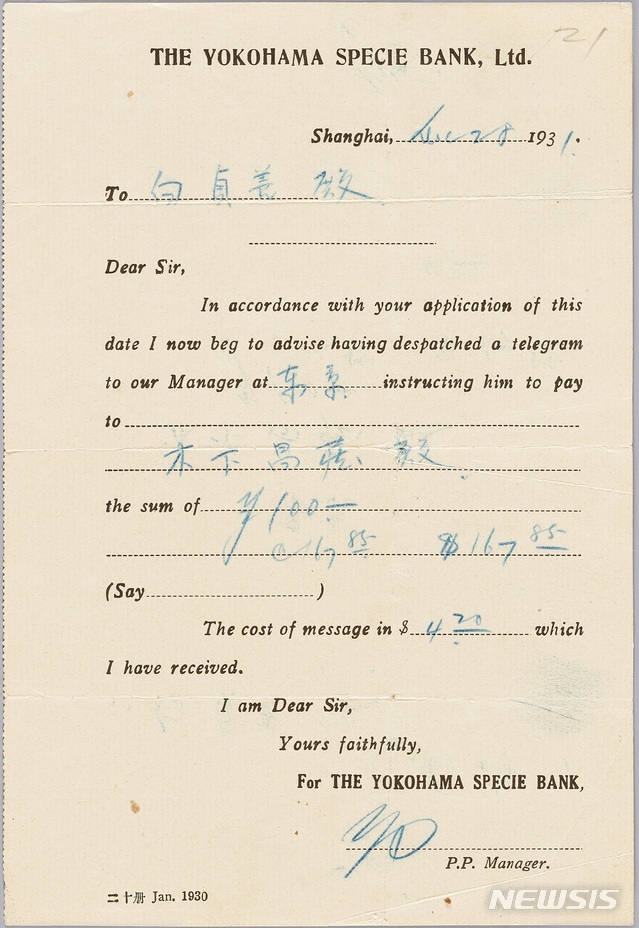 21
THE YOKOHAMA SPECIE BANK, Ltd.
Shanghai, Dec 28 1931.
To 白貞善 殿
Dear Sir,
In accordance with your application of this
date I now beg to advise having despatched a telegram
to our Manager at 东京 instructing him to pay
to
木下昌藏 殿
the sum of ¥100—
@ 167 85 $167 85
(Say )
The cost of message in $ 4 20 which
I have received.
I am Dear Sir,
Yours faithfully,
For THE YOKOHAMA SPECIE BANK,
P.P. Manager.
二十册 Jan. 1930
NEWSIS